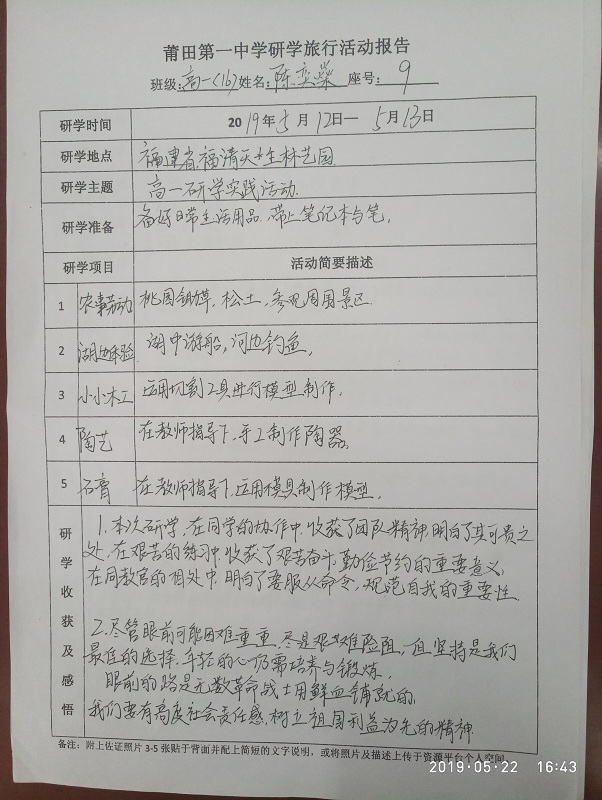 莆田第一中学研学旅行活动报告
班级:高一(16)姓名:陈奕燊 座号: 9
研学时间 2019年5月12日— 5月13日
研学地点 福建省福清天生林艺园
研学主题 高一研学实践活动.
研学准备 备好日常生活用品.带上笔记本与笔.
研学项目 活动简要描述
1 农事劳动 桃园锄草,松土,参观周围景区.
2 湖边体验 湖中游船,河边钓鱼,
3 小小木工 运用切割工具进行模型制作.
4 陶艺 在教师指导下,手工制作陶器.
5 石膏 在教师指导下,运用模具制作模型.
研学收获及感悟
1.本次研学,在同学的协作中,收获了团队精神,明白了其可贵之
处,在艰苦的练习中,收获了艰苦奋斗,勤俭节约的重要意义,
在同教官的相处中,明白了要服从命令,规范自我的重要性.
2.尽管眼前可能困难重重,尽是艰难险阻,但坚持是我们
最佳的选择.年轻的心仍需培养与锻炼.
眼前的路是无数革命战士用鲜血铺就的.
我们要有高度社会责任感,树立祖国利益为先的精神.
备注:附上佐证照片 3-5 张贴于背面并配上简短的文字说明,或将照片及描述上传于资源平台个人空间
2019-05-22 16:43